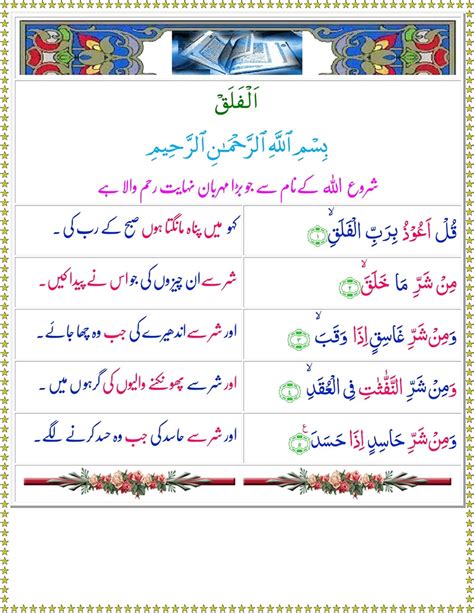 اَلْفَلَقْ
بِسْمِ ٱللَّهِ ٱلرَّحْمَـٰنِ ٱلرَّحِيمِ
شروع اللہ کے نام سے جو بڑا مہربان نہایت رحم والا ہے
قُلْ اَعُوْذُ بِرَبِّ الْفَلَقِۙ ۝۱ کہو میں پناہ مانگتا ہوں صبح کے رب کی ۔
مِنْ شَرِّ مَا خَلَقَۙ ۝۲ شر سے ان چیزوں کی جو اس نے پیدا کیں۔
وَمِنْ شَرِّ غَاسِقٍ اِذَا وَقَبَۙ ۝۳ اور شر سے اندھیرے کی جب وہ چھا جائے۔
وَمِنْ شَرِّ النَّفّٰثٰتِ فِی الْعُقَدِۙ ۝۴ اور شر سے پھونکنے والیوں کی گرہوں میں ۔
وَمِنْ شَرِّ حَاسِدٍ اِذَا حَسَدَ۠ ۝۵ اور شر سے حاسد کی جب وہ حسد کرنے لگے۔